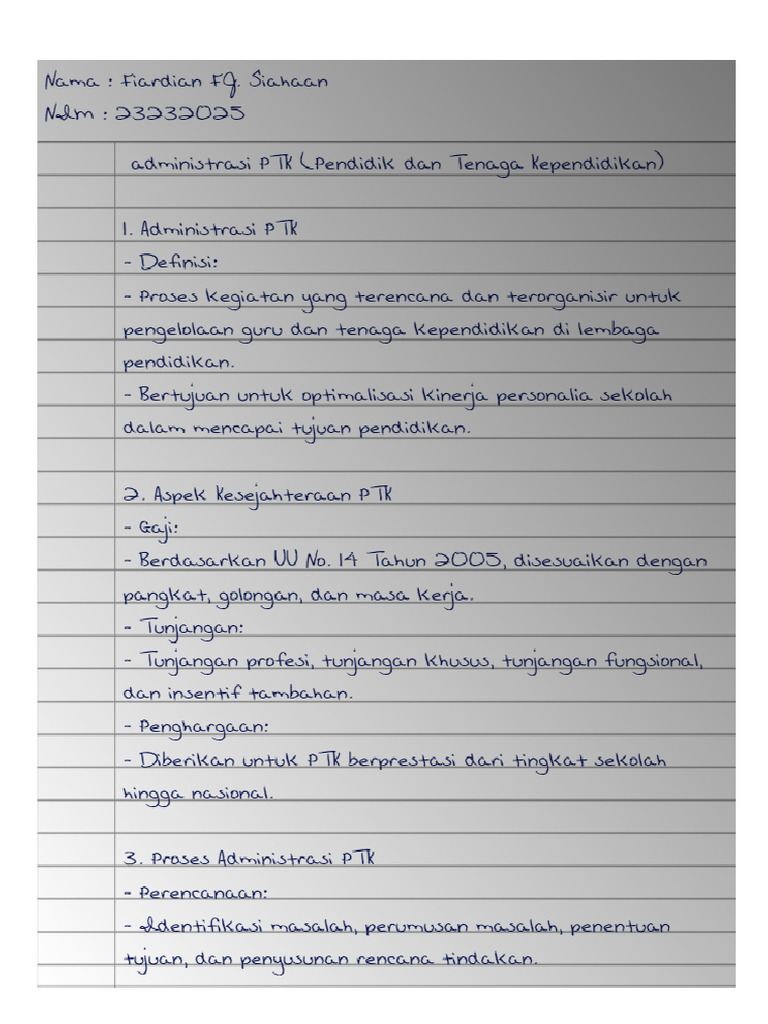 Nama : Fiardian FJ. Siahaan
NIm : 23232025
administrasi PTK (Pendidik dan Tenaga Kependidikan)
1. Administrasi PTK
- Definisi:
- Proses kegiatan yang terencana dan terorganisir untuk
pengelolaan guru dan tenaga kependidikan di lembaga
pendidikan.
- Bertujuan untuk optimalisasi kinerja personalia sekolah
dalam mencapai tujuan pendidikan.
2. Aspek Kesejahteraan PTK
- Gaji:
- Berdasarkan UU No. 14 Tahun 2005, disesuaikan dengan
pangkat, golongan, dan masa kerja.
- Tunjangan:
- Tunjangan profesi, tunjangan khusus, tunjangan fungsional,
dan insentif tambahan.
- Penghargaan:
- Diberikan untuk PTK berprestasi dari tingkat sekolah
hingga nasional.
3. Proses Administrasi PTK
- Perencanaan:
- Identifikasi masalah, perumusan masalah, penentuan
tujuan, dan penyusunan rencana tindakan.